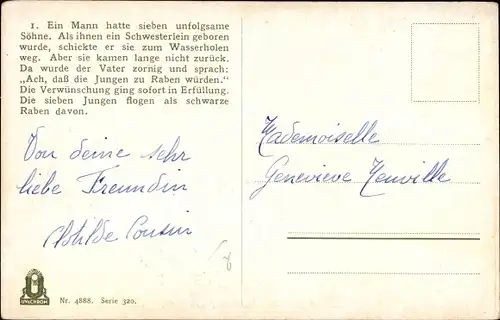 1. Ein Mann hatte sieben unfolgsame
Söhne. Als ihnen ein Schwesterlein geboren
wurde, schickte er sie zum Wasserholen
weg. Aber sie kamen lange nicht zurück.
Da wurde der Vater zornig und sprach:
„Ach, daß die Jungen zu Raben würden.“
Die Verwünschung ging sofort in Erfüllung.
Die sieben Jungen flogen als schwarze
Raben davon.
Von deine sehr
liebe Freundin
Cousin
Mademoiselle
Genevieve
UVACHROM
Nr. 4888. Serie 320.
8